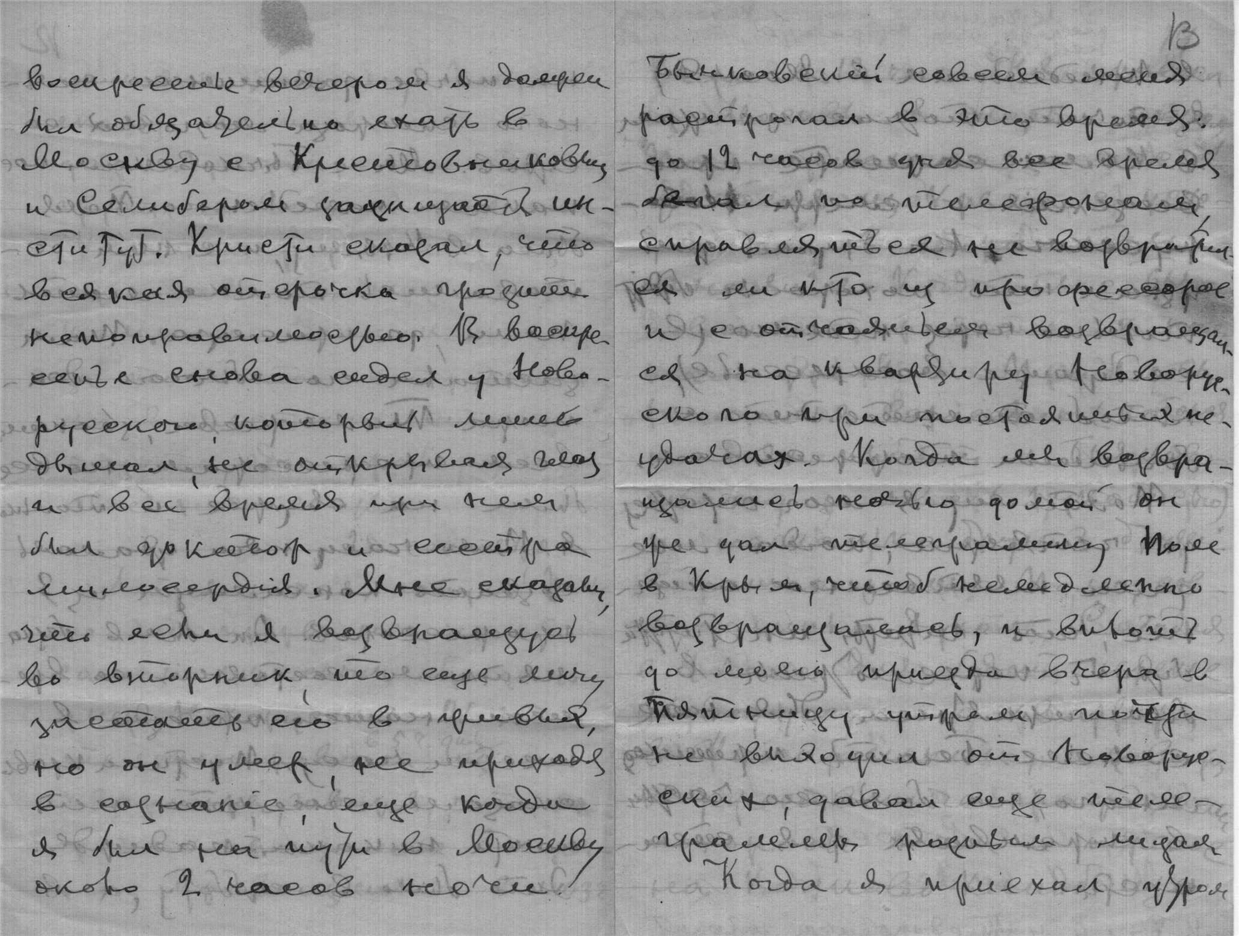 воскресенье вечером я должен
был обязательно ехать в
Москву с Крестовниковым
и Селибером защищать ин-
ститут. Кристи сказал, что
всякая отсрочка грозит
непоправимостью. В воскре-
сенье снова сидел у Ново-
русского, который лишь
дышал, не открывая глаз
и все время при нем
был доктор и сестра
милосердія. Мне сказали,
что если я возвращусь
во вторник, то еще могу
застать его в живых,
но он умер, не приходя
в сознаніе, еще когда
я был на пути в Москву
около 2 часов ночи.
13
Бычковскій совсем меня
растрогал в это время:
до 12 часов дня все время
бегал по телефонам,
справляться не возврати-
ся ли кто из профессоров
и с отчаяньем возвращал-
ся на квартиру Новорус-
ского при постоянных не-
удачах. Когда мы возвра-
щались ночью домой он
же дал телеграмму Поле
в Крым, чтоб немедленно
возвращались, и вплоть
до моего приезда вчера в
пятницу утром почти
не выходил от Новорус-
ских, давал еще теле-
граммы разным лицам
Когда я приехал утром